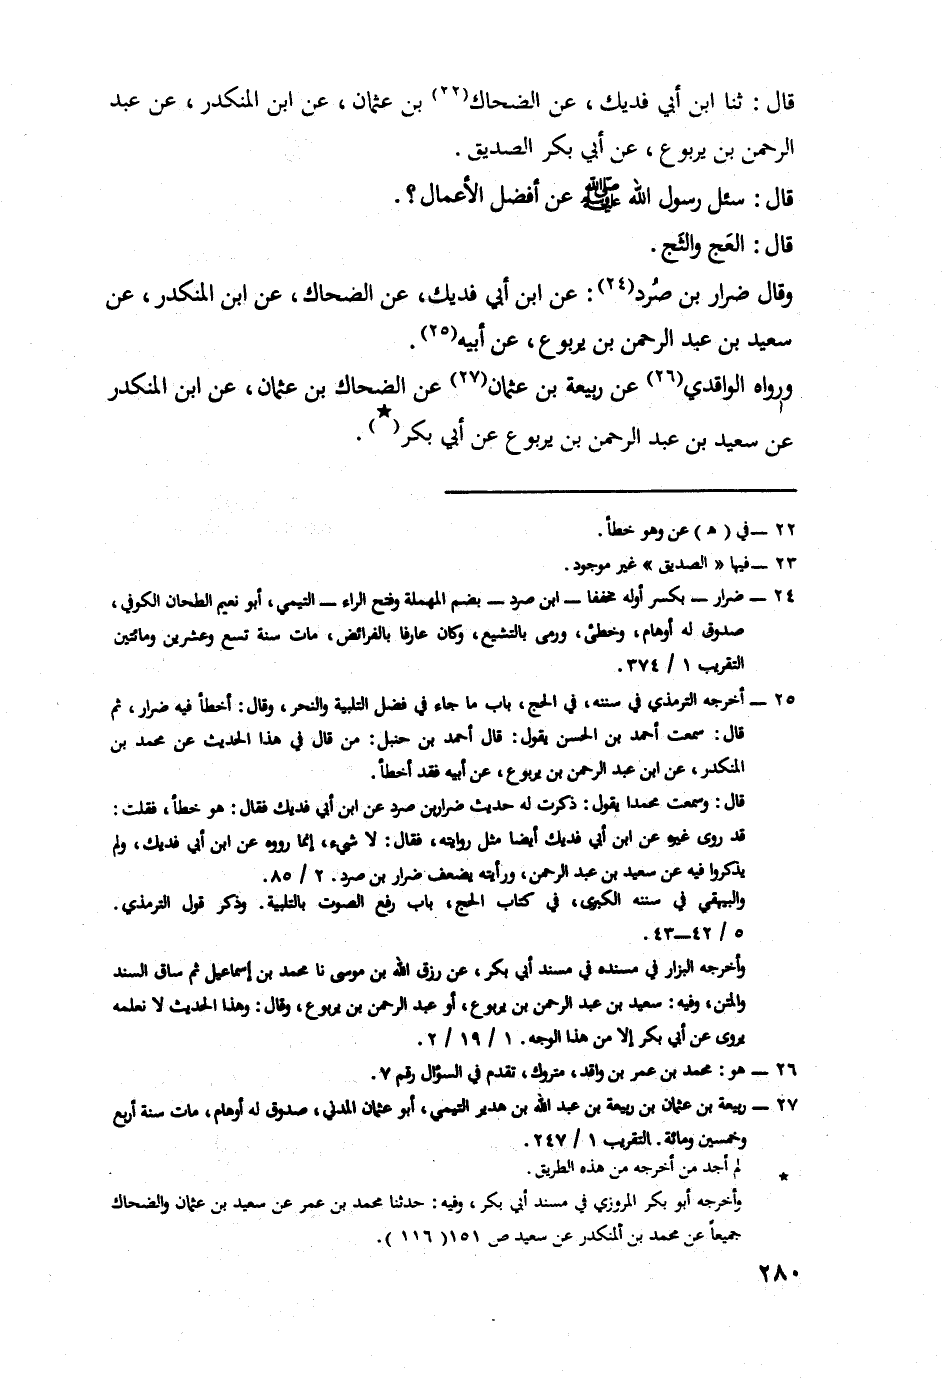 قال : ثنا ابن أبي فديك ، عن الضحاك(٢٢) بن عثمان ، عن ابن المنكدر ، عن عبد
الرحمن بن يربوع ، عن أبي بكر الصديق .
قال : سئل رسول الله ﷺ عن أفضل الأعمال ؟ .
قال : العَج والثَج .
وقال ضرار بن صُرد(٢٤) : عن ابن أبي فديك ، عن الضحاك ، عن ابن المنكدر ، عن
سعيد بن عبد الرحمن بن يربوع ، عن أبيه(٢٥) .
ورواه الواقدي(٢٦) عن ربيعة بن عثمان(٢٧) عن الضحاك بن عثمان ، عن ابن المنكدر
عن سعيد بن عبد الرحمن بن يربوع عن أبي بكر(★) .
٢٢ ــ في ( هـ ) عن وهو خطأ .
٢٣ ــ فيها « الصديق » غير موجود .
٢٤ ــ ضرار ــ بكسر أوله مخففا ــ ابن صرد ــ بضم المهملة وفتح الراء ــ التيمي ، أبو نعيم الطحان الكوفي ،
صدوق له أوهام ، وخطئ ، ورمى بالتشيع ، وكان عارفا بالفرائض ، مات سنة تسع وعشرين ومائتين
التقريب ١ / ٣٧٤ .
٢٥ ــ أخرجه الترمذي في سننه ، في الحج ، باب ما جاء في فضل التلبية والنحر ، وقال : أخطأ فيه ضرار ، ثم
قال : سمعت أحمد بن الحسن يقول : قال أحمد بن حنبل : من قال في هذا الحديث عن محمد بن
المنكدر ، عن ابن عبد الرحمن بن يربوع ، عن أبيه فقد أخطأ .
قال : وسمعت محمدا يقول : ذكرت له حديث ضراربن صرد عن ابن أبي فديك فقال : هو خطأ ، فقلت :
قد روى غيره عن ابن أبي فديك أيضا مثل روايته ، فقال : لا شيء ، إنما رووه عن ابن أبي فديك ، ولم
يذكروا فيه عن سعيد بن عبد الرحمن ، ورأيته يضعف ضرار بن صرد . ٢ / ٨٥ .
والبيهقي في سننه الكبرى ، في كتاب الحج ، باب رفع الصوت بالتلبية . وذكر قول الترمذي .
٥ / ٤٢ــ٤٣ .
وأخرجه البزار في مسنده في مسند أبي بكر ، عن رزق الله بن موسى نا محمد بن إسماعيل ثم ساق السند
والمتن ، وفيه : سعيد بن عبد الرحمن بن يربوع ، أو عبد الرحمن بن يربوع ، وقال : وهذا الحديث لا نعلمه
يروى عن أبي بكر إلا من هذا الوجه . ١ / ١٩ / ٢ .
٢٦ ــ هو : محمد بن عمر بن واقد ، متروك ، تقدم في السؤال رقم ٧ .
٢٧ ــ ربيعة بن عثمان بن ربيعة بن عبد الله بن هدير التيمي ، أبو عثمان المدني ، صدوق له أوهام ، مات سنة أربع
وخمسين ومائة . التقريب ١ / ٢٤٧ .
★ لم أجد من أخرجه من هذه الطريق .
وأخرجه أبو بكر المروزي في مسند أبي بكر ، وفيه : حدثنا محمد بن عمر عن سعيد بن عثمان والضحاك
جميعاً عن محمد بن ألمنكدر عن سعيد ص ١٥١( ١١٦ ) .
٢٨٠